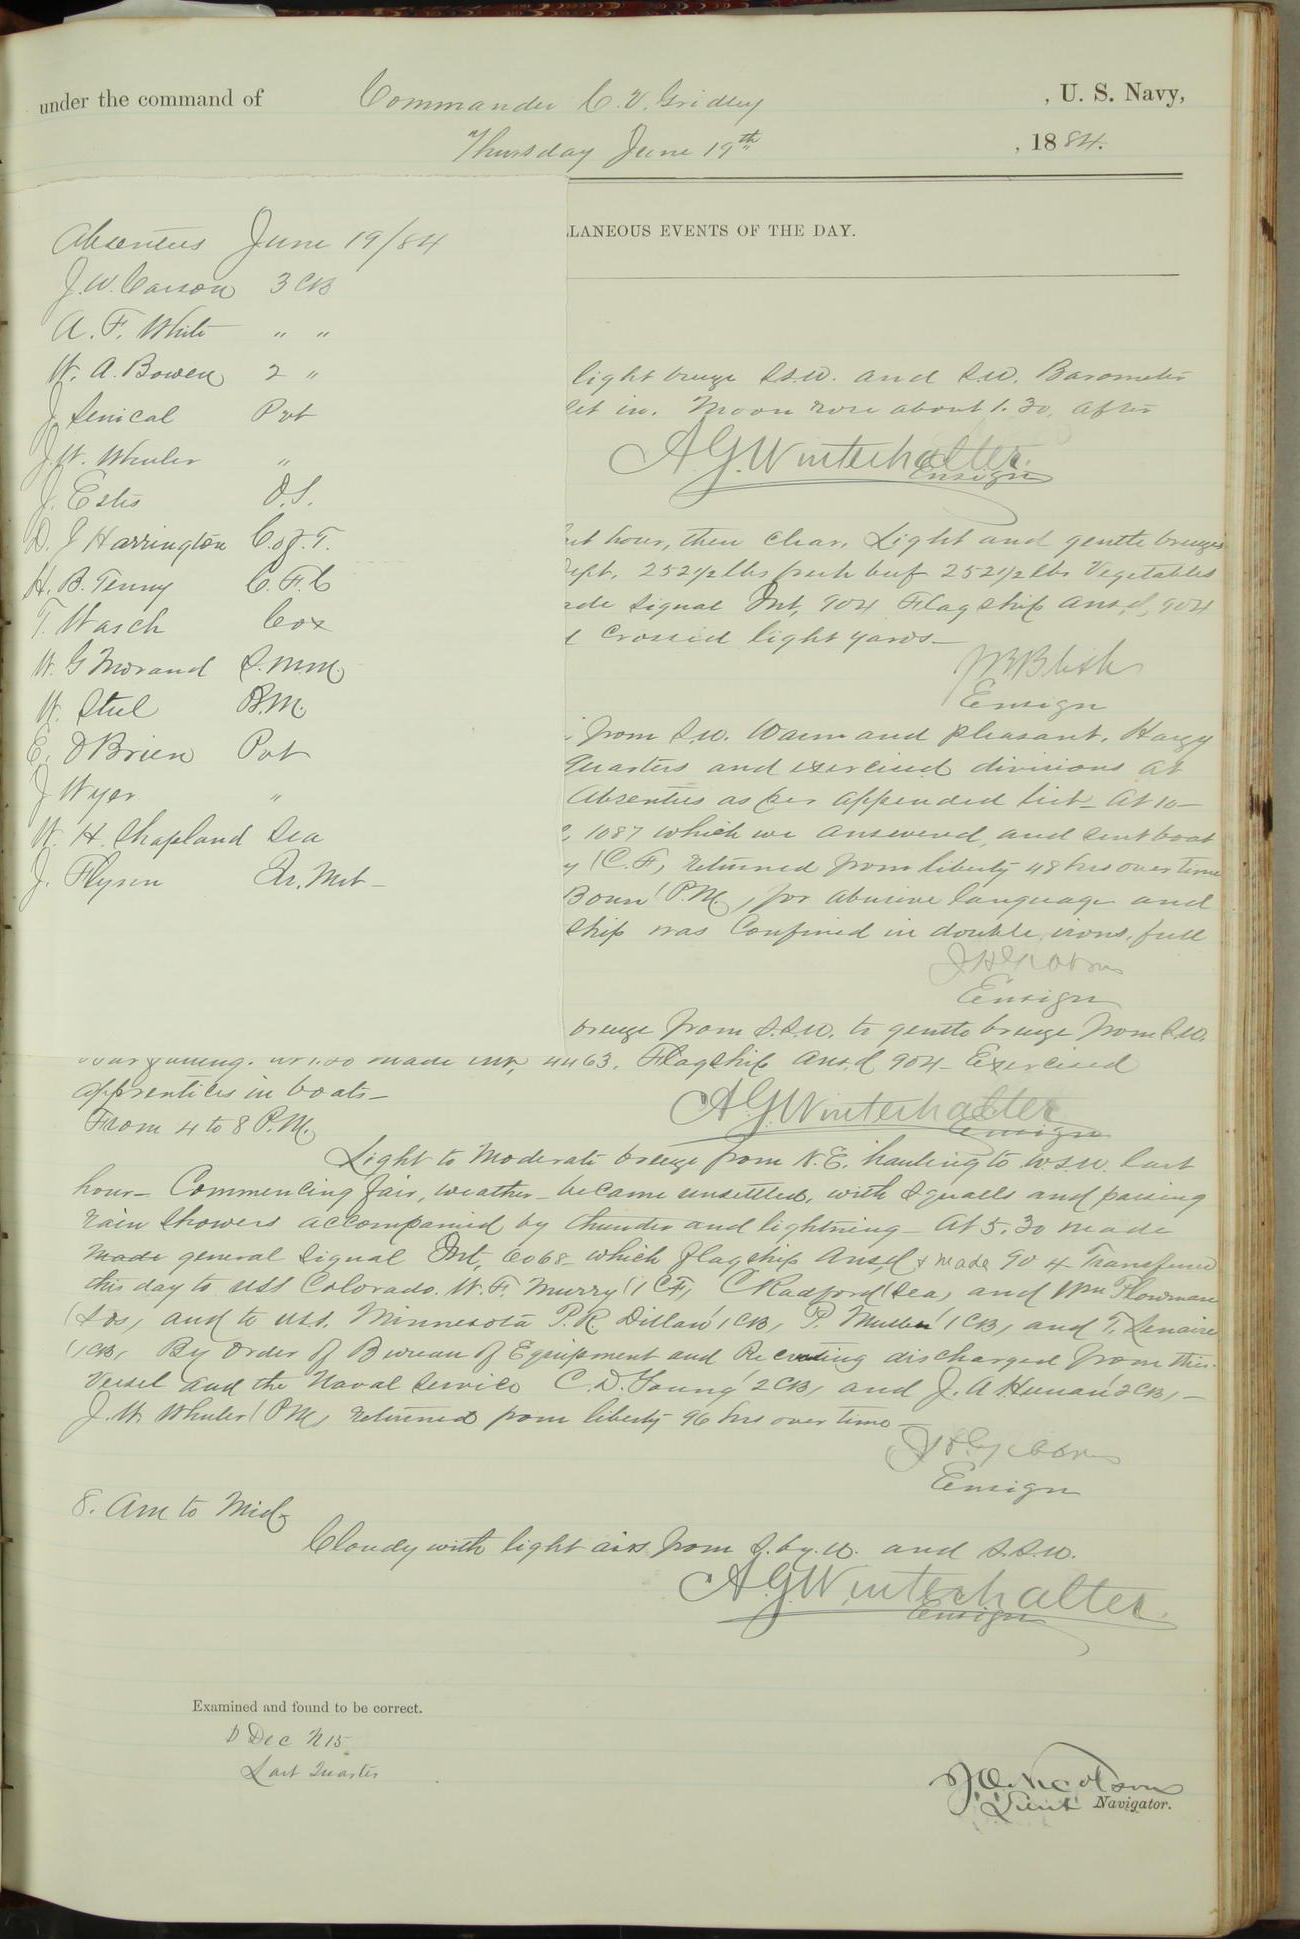 under the command of Commander C. V. Gridley , U. S. Navy,
Thursday June 19th , 1884.
LANEOUS EVENTS OF THE DAY.
Absentees June 19/84
J. W. Carson 3 CB
A. F. White " "
W. A. Bowen 2 "
J. Senical Pvt
J. W. Wheeler "
J. Estis O.S.
D. J Harrington C. of. T.
H. B. Tenny C. F. C
T. Wasch Cox
W. G Morand S. M.M.
W. Steel B.M.
E. O'Brien Pvt
J Wyer "
W. H. Shapland Sea
J. Flynn Qr. Mst
light breeze S.S.W. and S.W. Barometer
set in. Moon rose about 1.30. After
A. G. Winterhalter.
Ensign
hour, then clear. Light and gentle breezes
Dept, 252 1/2 lbs fresh beef 252 1/2 lbs Vegetables
signal Int, 904 Flagship ans,d, 904
crossed light yards
J B Blish
Ensign
from S.W. Warm and pleasant. Hazy
Quarters and exercised divisions at
Absentees as per appended list_ At 10_
1087 which we answered, and sent boat
y (C.F, returned from liberty 48 hrs over time
Bourn (P.M, for abusive language and
ship was confined in double irons, full
J H Gibbons
Ensign
breeze from S.S.W. to gentle breeze from S.W.
made Int, 4463. Flagship Ans,d 904_ Exercised
apprentices in boats_
A. G. Winterhalter
Ensign
From 4 to 8 P.M.
Light to Moderate breeze from N.E. hauling to W.S.W. last
hour_ Commencing fair, weather_ became unsettled, with squalls and passing
rain showers accompanied by thunder and lightning_ At 5.30 made
made general signal Int, 6068_ which flagship Ans,d & made 904 Transfered
this day to USS Colorado. W. F. Murry (1 CF, C Radford (Sea, and Wm Plowman
(Lds, and to U.S.S. Minnesota P. R. Dillan (1 CB, P. Mullen (1 CB, and T. Senaire
(1CB, By Order of Bureau of Equipment and Recruiting discharged from this
Vessel and the Naval Service C. D. Young (2 CB, and J. A Heenan (2 CB,_
J. W Wheeler (PM, returned from liberty 96 hrs over time_
J H Gibbons
Ensign
8. Am to Mid_
Cloudy with light airs from S. by. W. and S.S.W.
A. G. Winterhalter.
Ensign
Examined and found to be correct.
D Dec N 15
Last Quarter
J. O. Nicolson
Lieut Navigator.